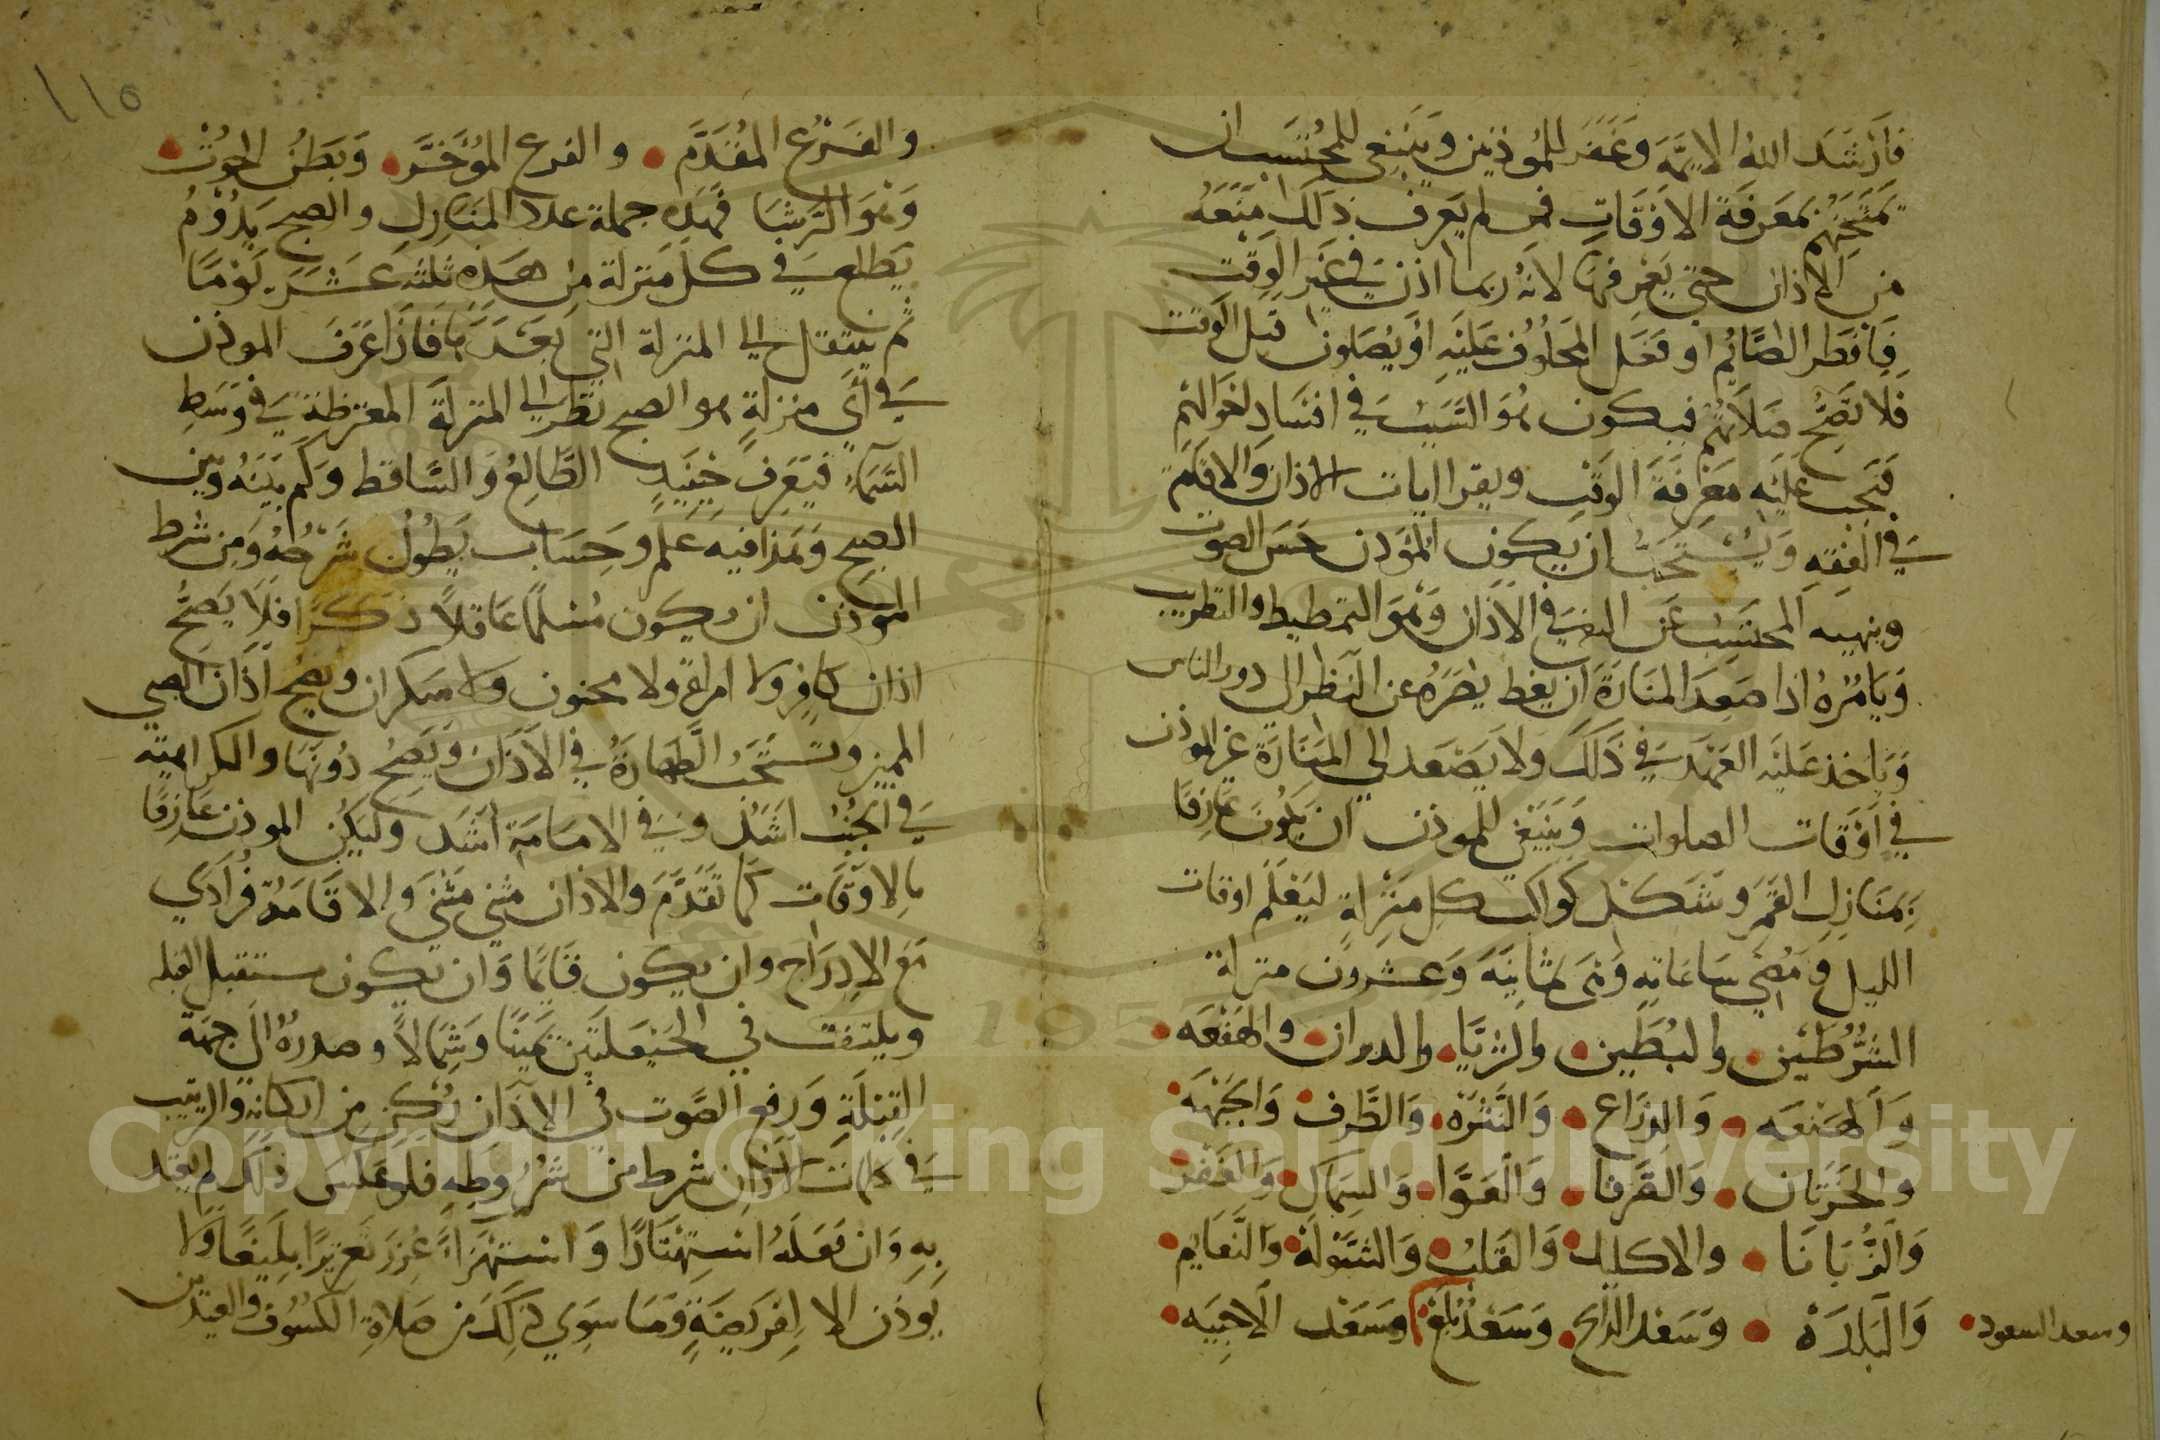 فارشد الله الايمة وغفر للمؤذنين وينبغي للمحتسب ان
يمتحنهم بمعرفة الاوقات فمن لم يعرف ذلك منعه
من الاذان حتى يعرفها لانه ربما اذن في غير الوقت
فافطر الصايم او فعل المحلوف عليه او يصلون قبل الوقت
فلا تصح صلاتهم فيكون هو السبب في افساد احوالهم
فيجب عليه معرفة الوقت ويقرا ابات الاذان والاقامة
في الفقه ويستحب ان يكون المؤذن حسن الصوت
وينهيه المحتسب عن التغني في الاذان وهو التمطيط والتطريب
ويامره اذا صعد المنارة ان يغط بصره عن النظر الى دور الناس
وياخذ عليه العهد في ذلك ولا يصعد الى المنارة غير الموذن
في اوقات الصلوات وينبغي للموذن ان يكون عارفا
بمنازل القمر وشكل كواكب كل منزلة ليعلم اوقات
الليل ومضي ساعاته وهي ثمانية وعشرون منزلة
الشرطين والبطين والثريا والدبران والهقعه
والهنعه والذراع والنثرة والطرف والجبهة
والخرتان والصرفا والعوا والسماك والغفر
والزبانا والاكليل والقلب والشولة والنعايم
والبلدة وسعد الذابح وسعد بلع وسعد الاخبيه
وسعد السعود
١١٥
والفرع المقدم والفرع المؤخر وبطن الحوت
وهو الرشا فهذه جملة عدد المنازل والصبح يدوم
يطلع في كل منزلة من هذه ثلثه عشر يوما
ثم ينتقل الى المنزلة التي بعدها فاذا عرف الموذن
في اي منزلة هو الصبح نظر الى المنزلة المعترضة في وسط
السماء فيعرف حينيذ الطالع والساقط وكم بينه وبين
الصبح وهذا فيه علم وحساب يطول شرحه ومن شرط
الموذن ان يكون مسلما عاقلا ذكرا فلا يصح
اذان كافر ولا امراة ولا مجنون ولا سكران ويصح اذان الصبي
المميز وتستحب الطهارة في الاذان ويصح دونها والكراهية
في الجنب اشد وفي الامامة اشد وليكن الموذن عارفا
بالاوقات كما تقدم والاذان مثنى مثنى والاقامة فرادى
مع الادراج وان يكون قايما وان يكون مستقبل القبله
ويلتفت في الحيعلتين يمينا وشمالا وصدره الى جهة
القبلة ورفع الصوت في الاذان ركن من اركانه والترتيب
في كلمات الاذان شرط من شروطه فلو عكس ذلك لم يعتد
به وان فعله استهتارا واستهزاء عزر تعزيرا بليغا ولا
يوذن الا لفريضة وما سوى ذلك من صلاة الكسوف والعيدين
Copyright © King Saud University
1957